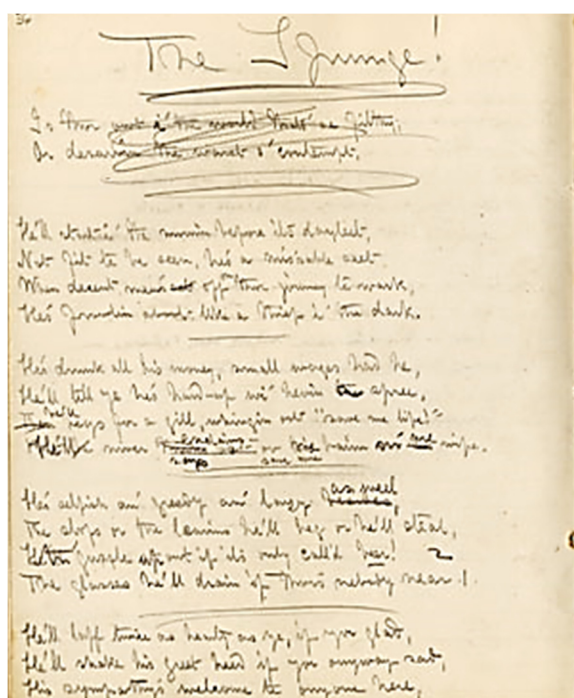 36
The Spunge!
Is thur owt i' the world that's as filthy,
Or deservin the worst o' contempt,
He'll the mornin before it's dayleet,
Not fit te be seen, he's a mis'rable seet
When decent men's off thor jorney te wark,
He's about like a thief i' the dark.
He's drunk all his money, small wages had he,
He'll tell ye he's hard-up wi' hevin a spree,
he'll for a gill, whingin out "save me life!"
He'll never or his wife.
says save me
He's selfish an' greedy an' lazy as weel,
The slops or the leavins he'll beg or he'll steal,
guzzle owt if it's only call'd beer!
The glasses he'll drain if thor's nebody near!
He'll laff twice as hearty as ye, if yor glad,
He'll shake his greet heed if yor anyway sad,
His sympathy's welcome te anyone here,